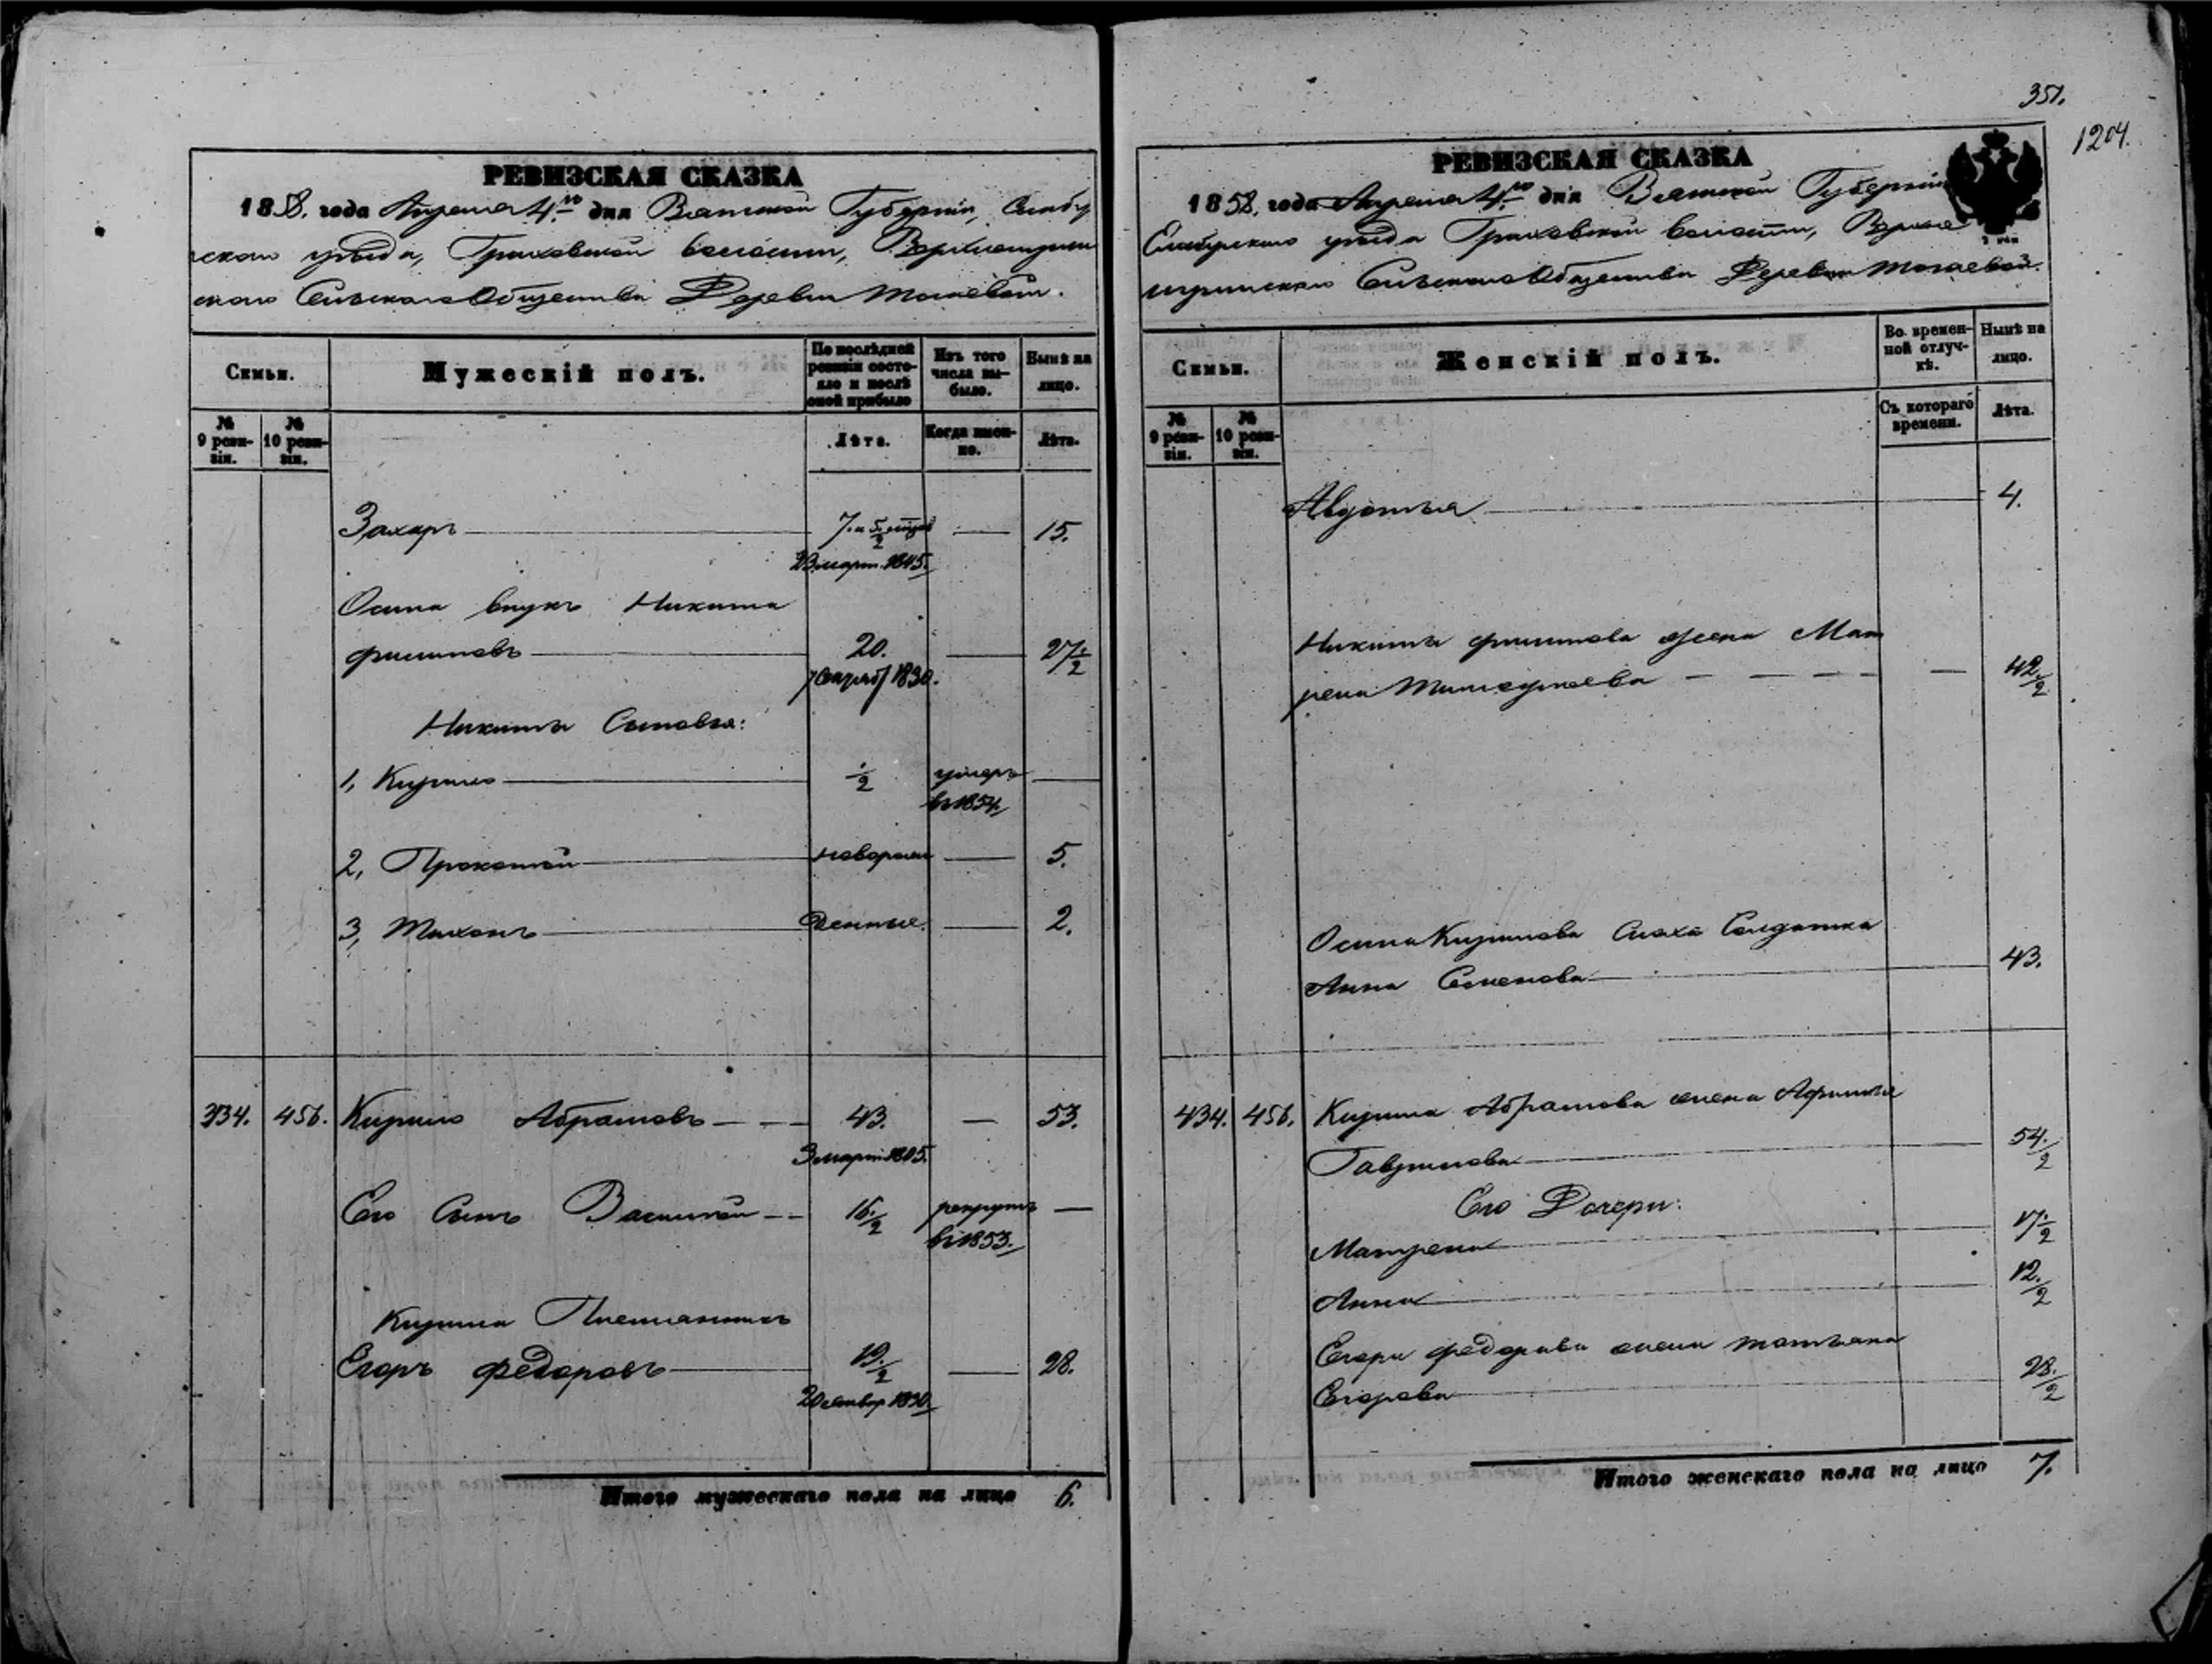 РЕВИЗСКАЯ СКАЗКА
1858. года Апреля 4.го дня Вятской Губернии,
уѣзда, волости,
Сельскаго Общества Деревни
Семьи.
Мужескій полъ.
По послѣдней ревизіи состояло и послѣ оной прибыло
Изъ того числа выбыло.
Нынѣ на лицо.
№ 9 ревизіи.
№ 10 ревизіи.
Лѣта.
Когда именно.
Лѣта.
Захаръ 15.
Осипа внукъ Никита
Филиповъ 20. 27 1/2
1830.
Никиты Сыновья:
1, Кирило 1/2 умеръ
въ 1854.
2, Прокопей новорож 5.
3, Тихонъ денные. 2.
434. 456. Кирило Абрамовъ 43. — 53.
3 март 1805.
Его Сынъ Василей 16 1/2 рекрутъ
въ 1853.
Кирила Племянникъ
Егоръ Федоровъ 19 1/2 28.
1830.
Итого мужескаго пола на лицо 6.
351.
1204.
РЕВИЗСКАЯ СКАЗКА
1858. года Апреля 4.го дня Вятской Губерніи
уѣзда волости,
Сельскаго Общества Деревни
Семьи.
Женскій полъ.
Во временной отлучкѣ.
Нынѣ на лицо.
№ 9 ревизіи.
№ 10 ревизіи.
Съ котораго времени.
Лѣта.
Авдотья 4.
Никиты Филипова жена Мат
рена 42 1/2
Осипа Кирилова Сноха Солдатка
Анна Семенова 43.
434. 456. Кирила Абрамова жена
Гаврилова 54 1/2
Его Дочери:
Матрена 17 1/2
Анна 12 1/2
Егора Федорова жена Татьяна
Егорова 28 1/2
Итого женскаго пола на лицо 7.